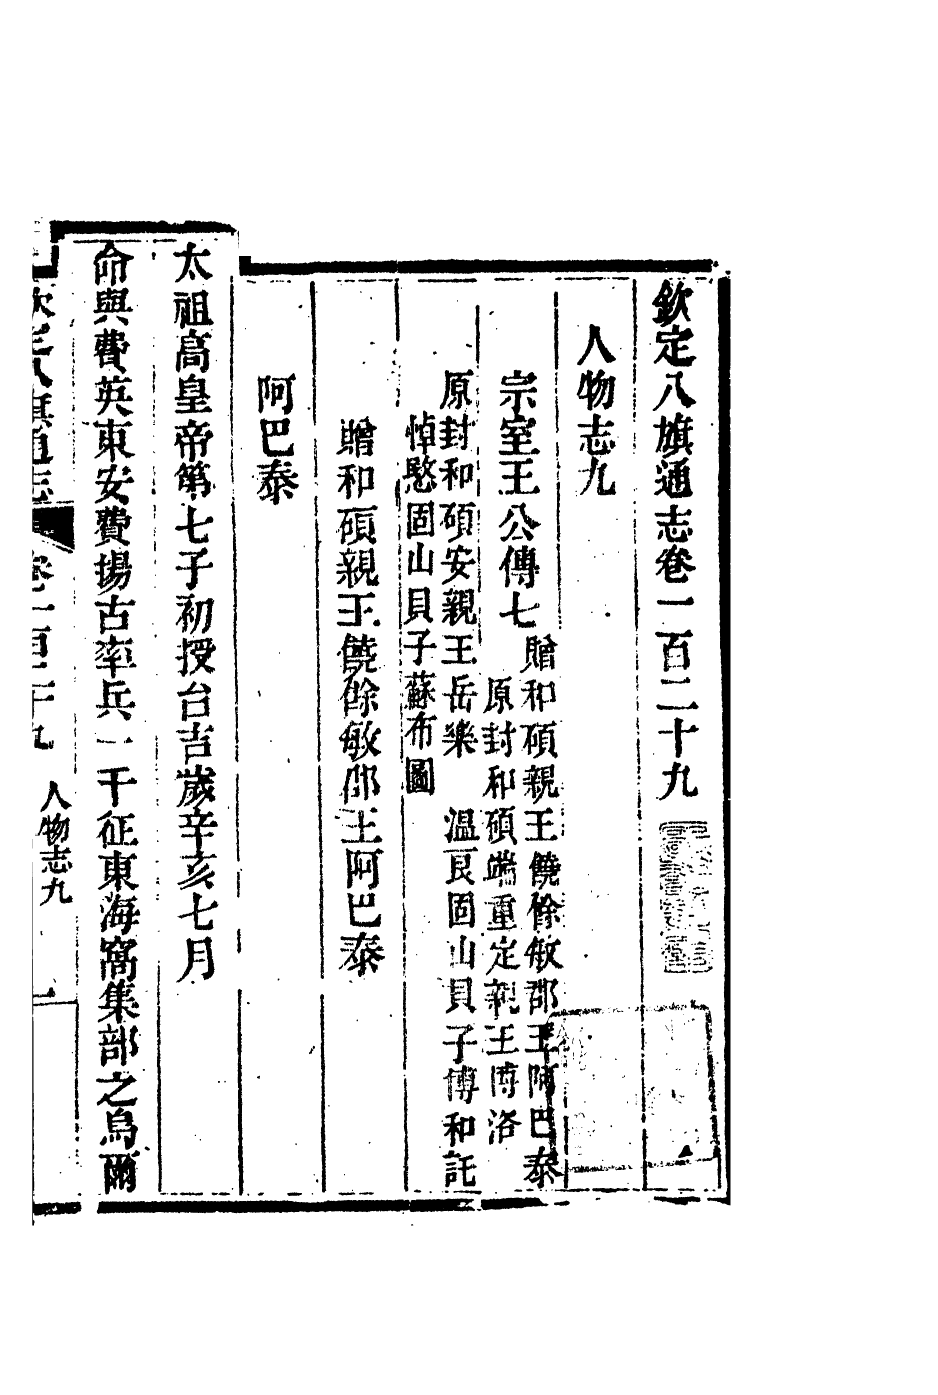 欽定八旗通志卷一百二十九
人物志九
宗室王公傳七
贈和碩親王饒餘敏郡王阿巴泰
原封和碩端重定親王博洛
原封和碩安親王岳樂 溫良固山貝子博和託
悼愍固山貝子蘇布圖
贈和碩親王饒餘敏郡王阿巴泰
阿巴泰
太祖高皇帝第七子初授台吉歲辛亥七月
命與費英東安費揚古率兵一千征東海窩集部之烏爾
欽定八旗通志 卷一百二十九 人物志九 一